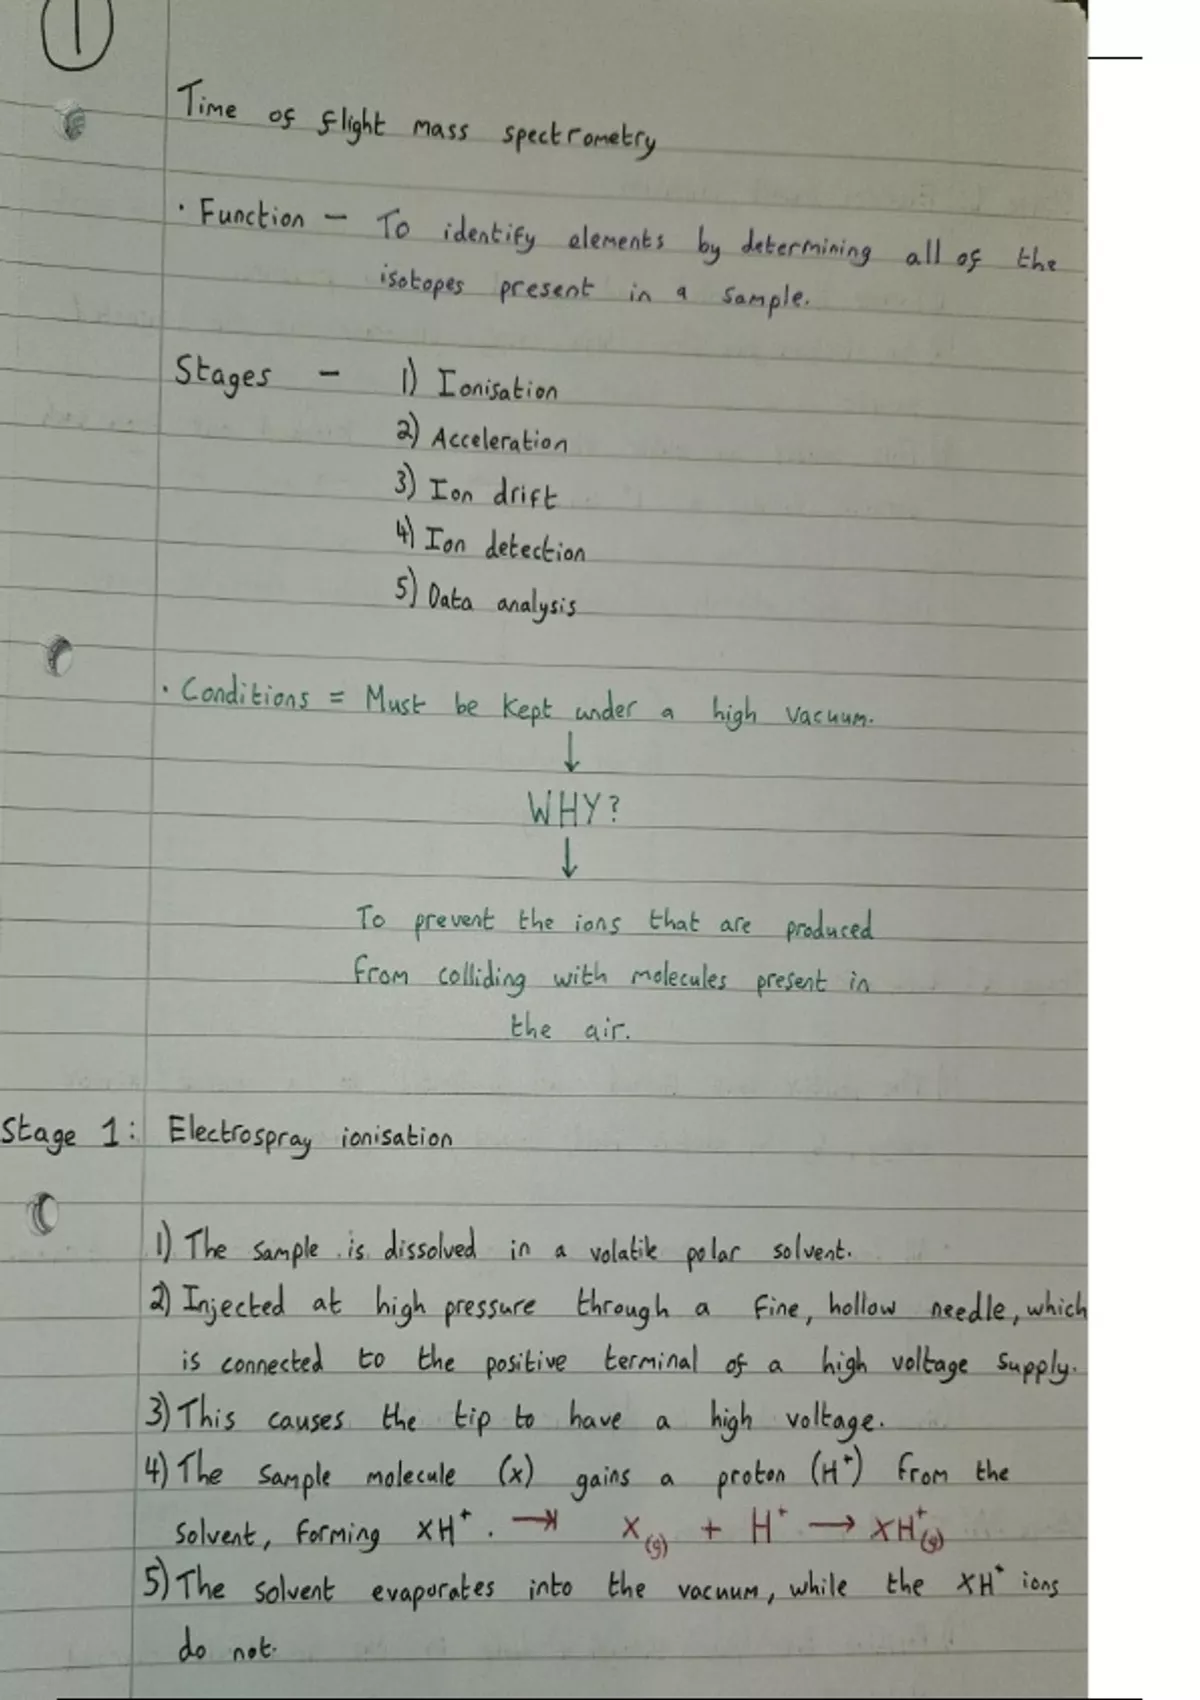 1
Time of flight mass spectrometry
· Function – To identify elements by determining all of the
isotopes present in a sample.
Stages – 1) Ionisation
2) Acceleration
3) Ion drift
4) Ion detection
5) Data analysis
· Conditions = Must be kept under a high vacuum.
↓
WHY?
↓
To prevent the ions that are produced
from colliding with molecules present in
the air.
Stage 1: Electrospray ionisation
1) The sample is dissolved in a volatile polar solvent.
2) Injected at high pressure through a fine, hollow needle, which
is connected to the positive terminal of a high voltage supply.
3) This causes the tip to have a high voltage.
4) The sample molecule (x) gains a proton (H⁺) from the
solvent, forming XH⁺. → X(g) + H⁺ → XH⁺(g)
5) The solvent evaporates into the vacuum, while the XH⁺ ions
do not.